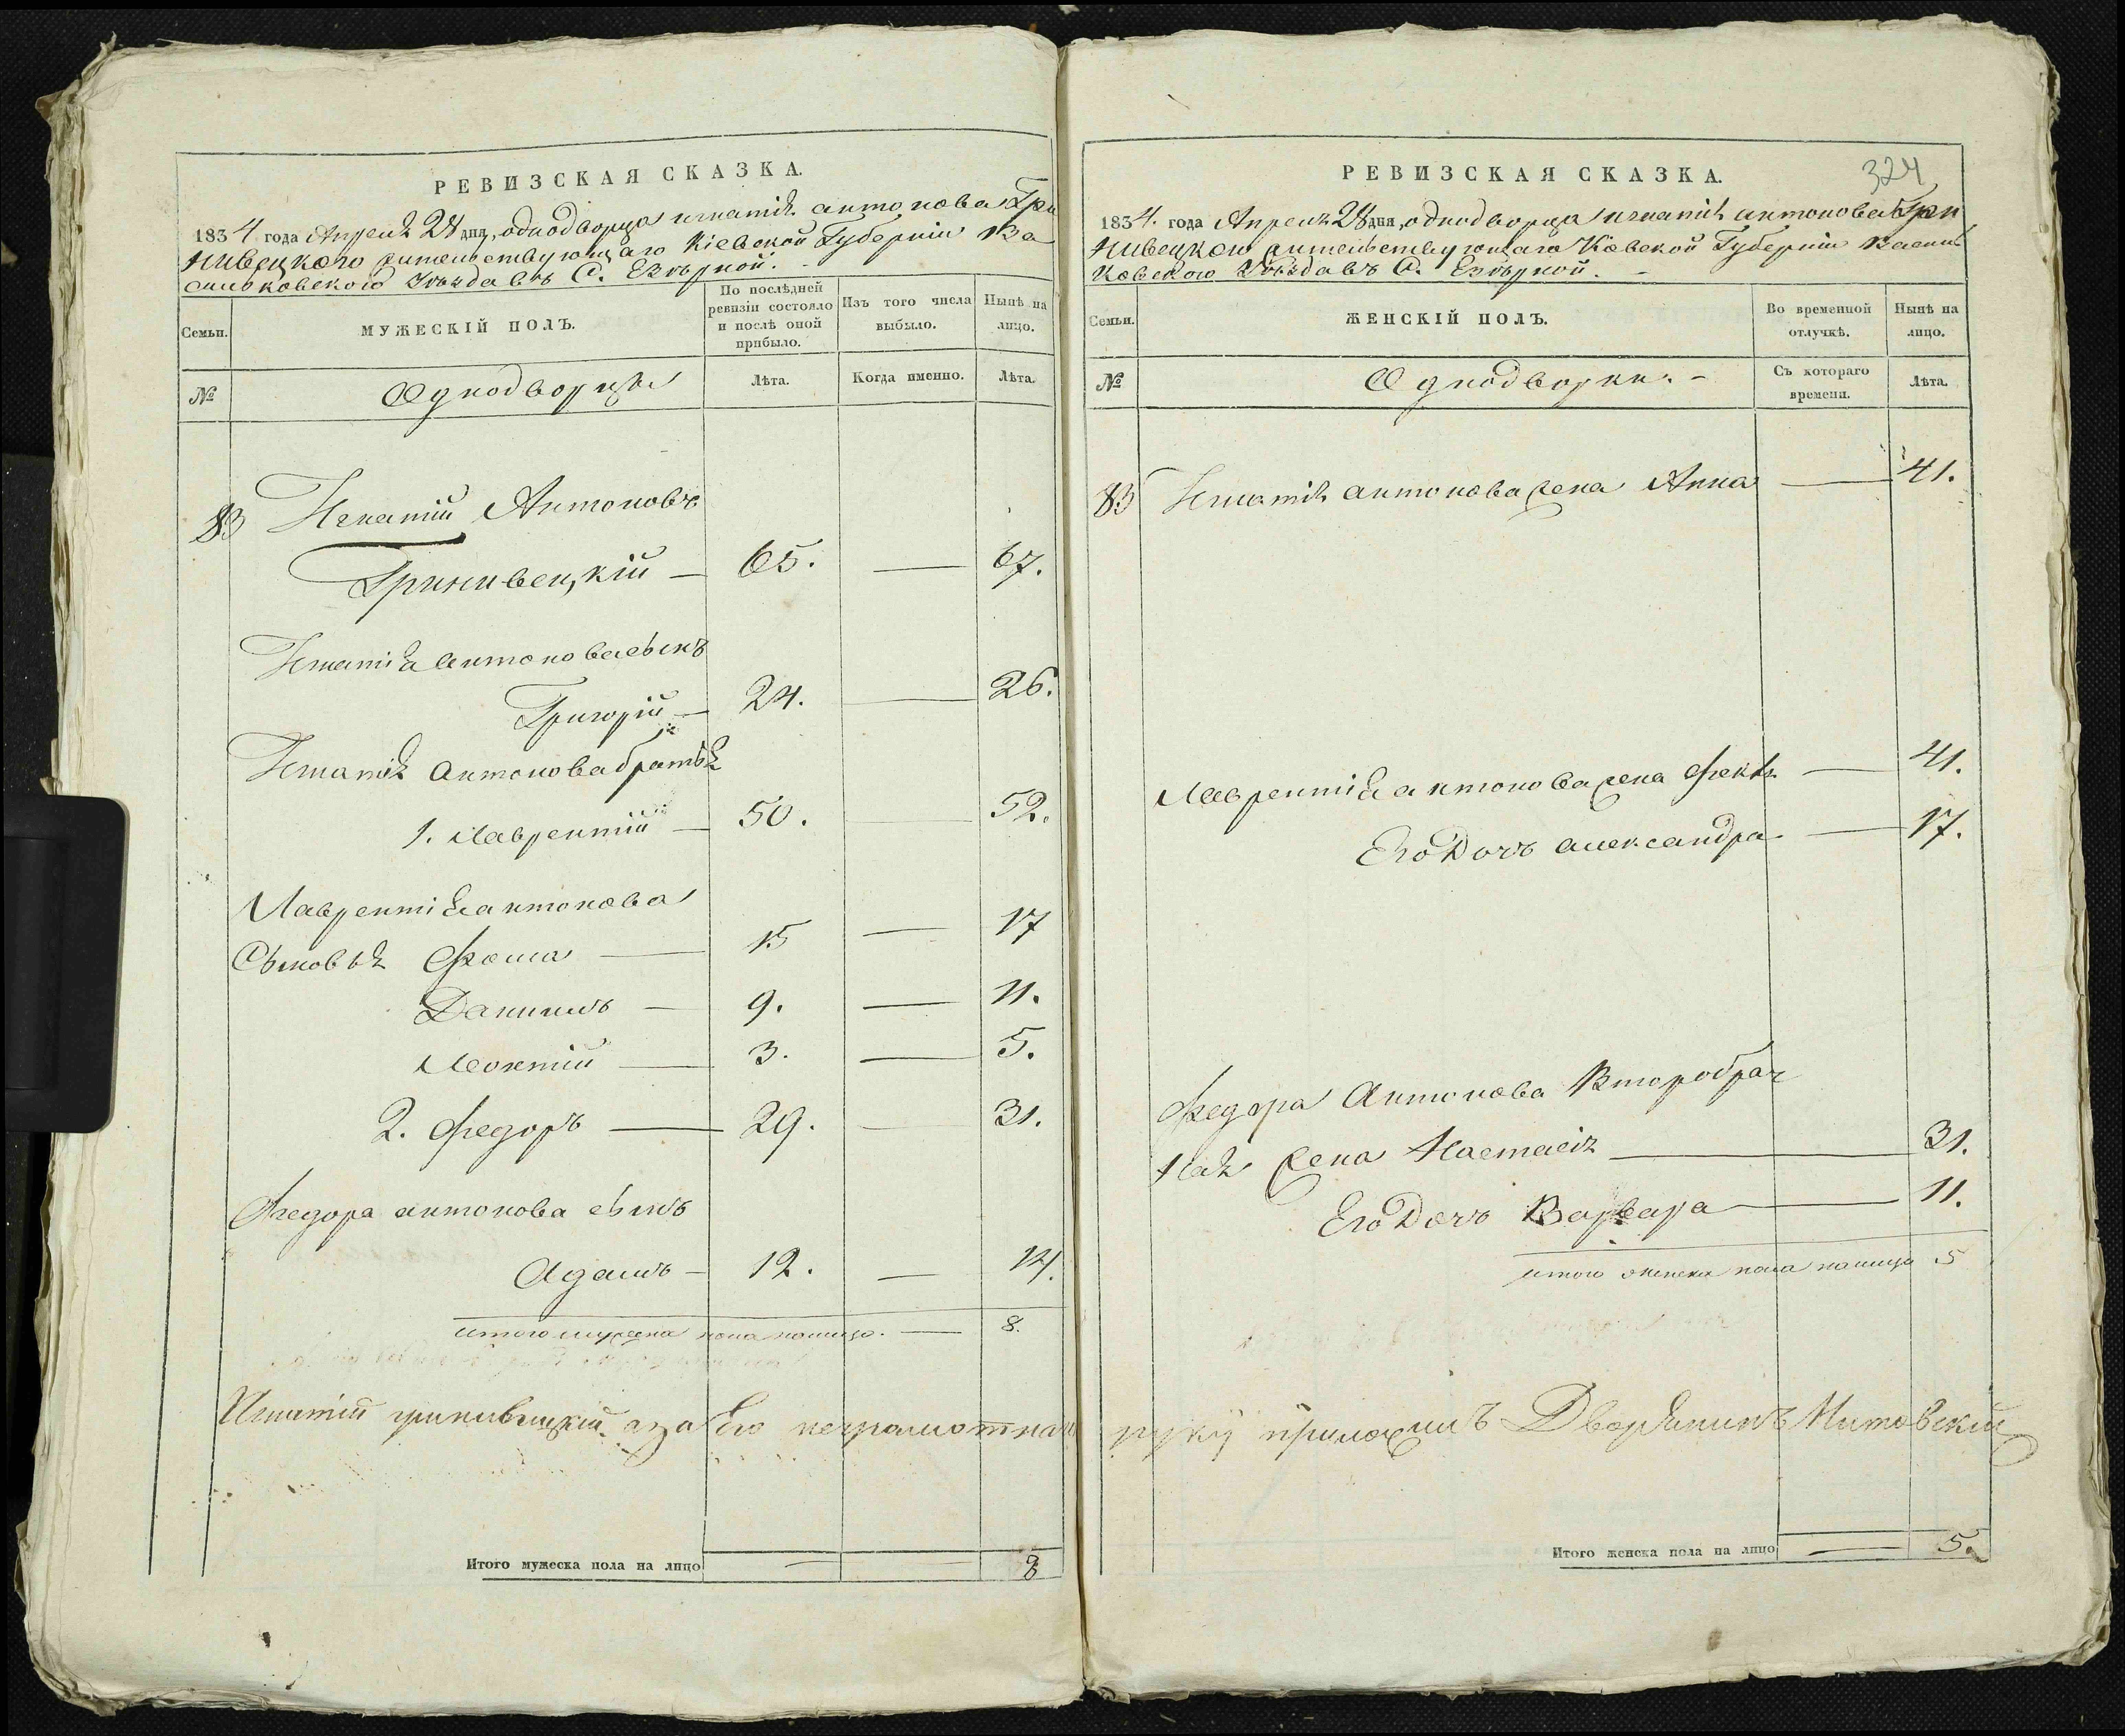 РЕВИЗСКАЯ СКАЗКА.
1834 года Апреля 28 дня, однодворца игнатія антонова Гри
нивецкого жительствующаго Кіевской Губерніи Ва
сильковского Уѣзда въ С. Езѣрной.
Семьи.
МУЖЕСКІЙ ПОЛЪ.
По послѣдней ревизіи состояло и послѣ оной прибыло.
Изъ того числа выбыло.
Нынѣ на лицо.
№
Однодворцы
Лѣта.
Когда именно.
Лѣта.
83 Игнатій Антоновъ
Гринивецкій — 65. — 67.
Игнатія антонова сынъ
Григорій — 24. — 26.
Игнатія антонова братья
1. Лаврентій — 50. — 52.
Лаврентія антонова
Сыновья Фома — 15 — 17
Данилъ — 9. — 11.
Леонтій — 3. — 5.
2. Федоръ — 29. — 31.
Федора антонова сынъ
Адамъ — 12. — 14.
итого мужеска пола налицо. — 8.
Игнатій гриневицкій а за Его неграмотнаго
Итого мужеска пола на лицо — — 8
324
РЕВИЗСКАЯ СКАЗКА.
1834. года Апреля 28 дня, однодворца игнатія антонова Гри
нивецкого жительствующаго Кіевской Губерніи Василь
ковского Уѣзда въ С. Езѣрной. —
Семьи.
ЖЕНСКІЙ ПОЛЪ.
Во временной отлучкѣ.
Нынѣ на лицо.
№
Однодворки. —
Съ котораго времени.
Лѣта.
83 Игнатія антонова жена Анна — 41.
Лаврентія антонова жена — 41.
Его Дочь александра — 17.
Федора Антонова Второбрач
ная жена Настасія — 31.
Его Дочь Варвара — 11.
итого женска пола налицо 5
руку приложилъ Дворянинъ
Итого женска пола на лицо — 5.